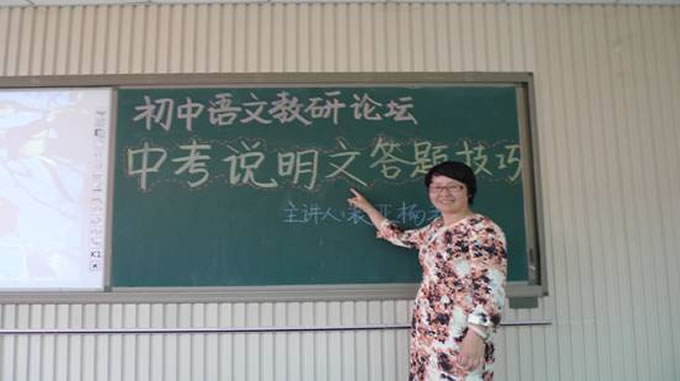 初中语文教研论坛
中考说明文答题技巧
主讲人:裴亚楠
K1